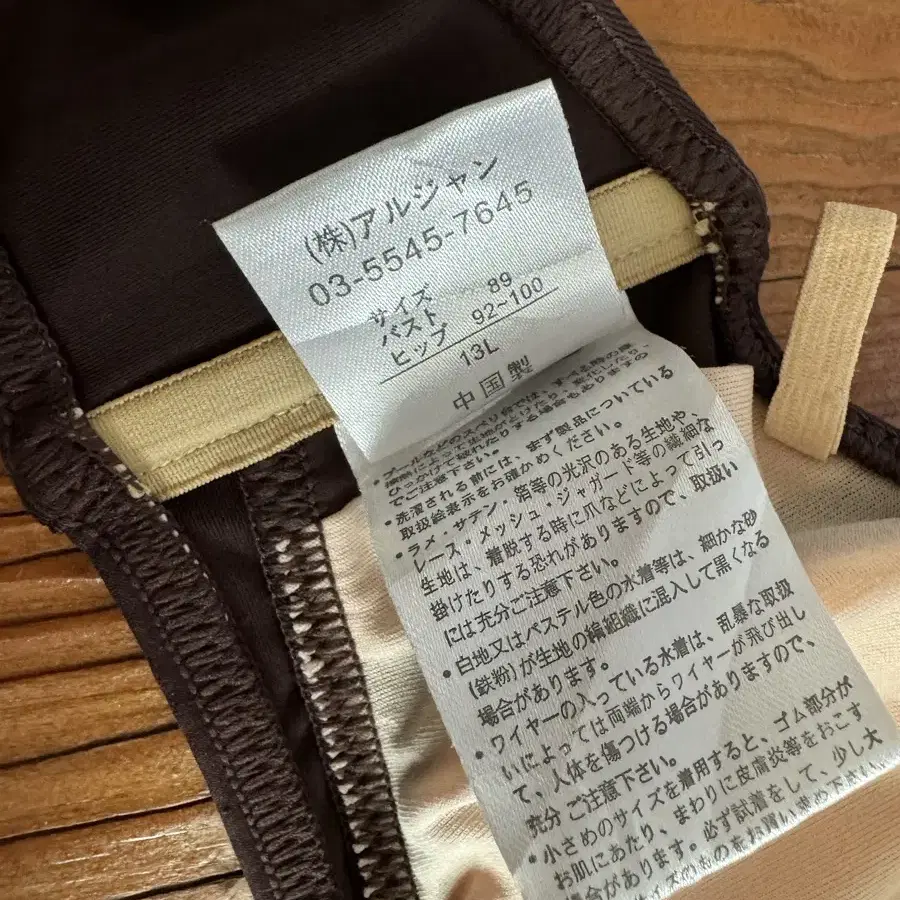 (株)アルジャン
03-5545-7645
サイズ
バスト 89
ヒップ 92~100
13L
中国製
・プールなどのスベリ台では、すべる時の摩
擦熱によって生地がとけたり、変化したり、
ひっかけて破れたりする場合もありますの
でご注意下さい。
・洗濯される前には、まず製品についている
取扱絵表示をお確かめください。
・ラメ・サテン・箔等の光沢のある生地や、
レース・メッシュ・ジャガード等の繊細な
生地は、着脱する時に爪などによって引っ
掛けたりする恐れがありますので、取扱い
には充分ご注意下さい。
・白地又はパステル色の水着等は、細かな砂
(鉄粉)が生地の編組織に混入して黒くなる
場合があります。
・ワイヤーの入っている水着は、乱暴な取扱
いによっては両端からワイヤーが飛び出し
て、人体を傷つける場合がありますので、
充分ご注意下さい。
・小さめのサイズを着用すると、ゴム部分が
お肌にあたり、まわりに皮膚炎等をおこす
場合があります。必ず試着をして、少し大
サイズのものをお買い求め下さい